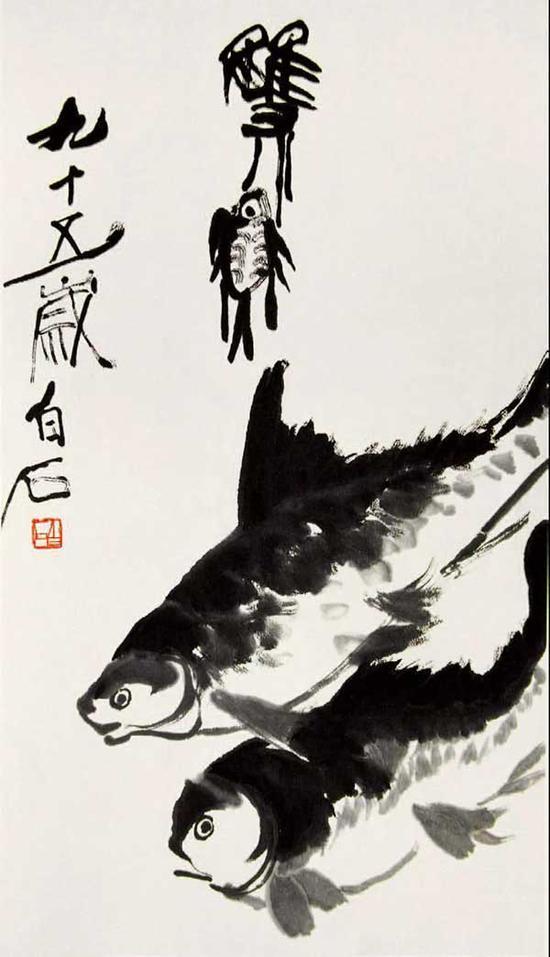 雙魚
九十五歲白石